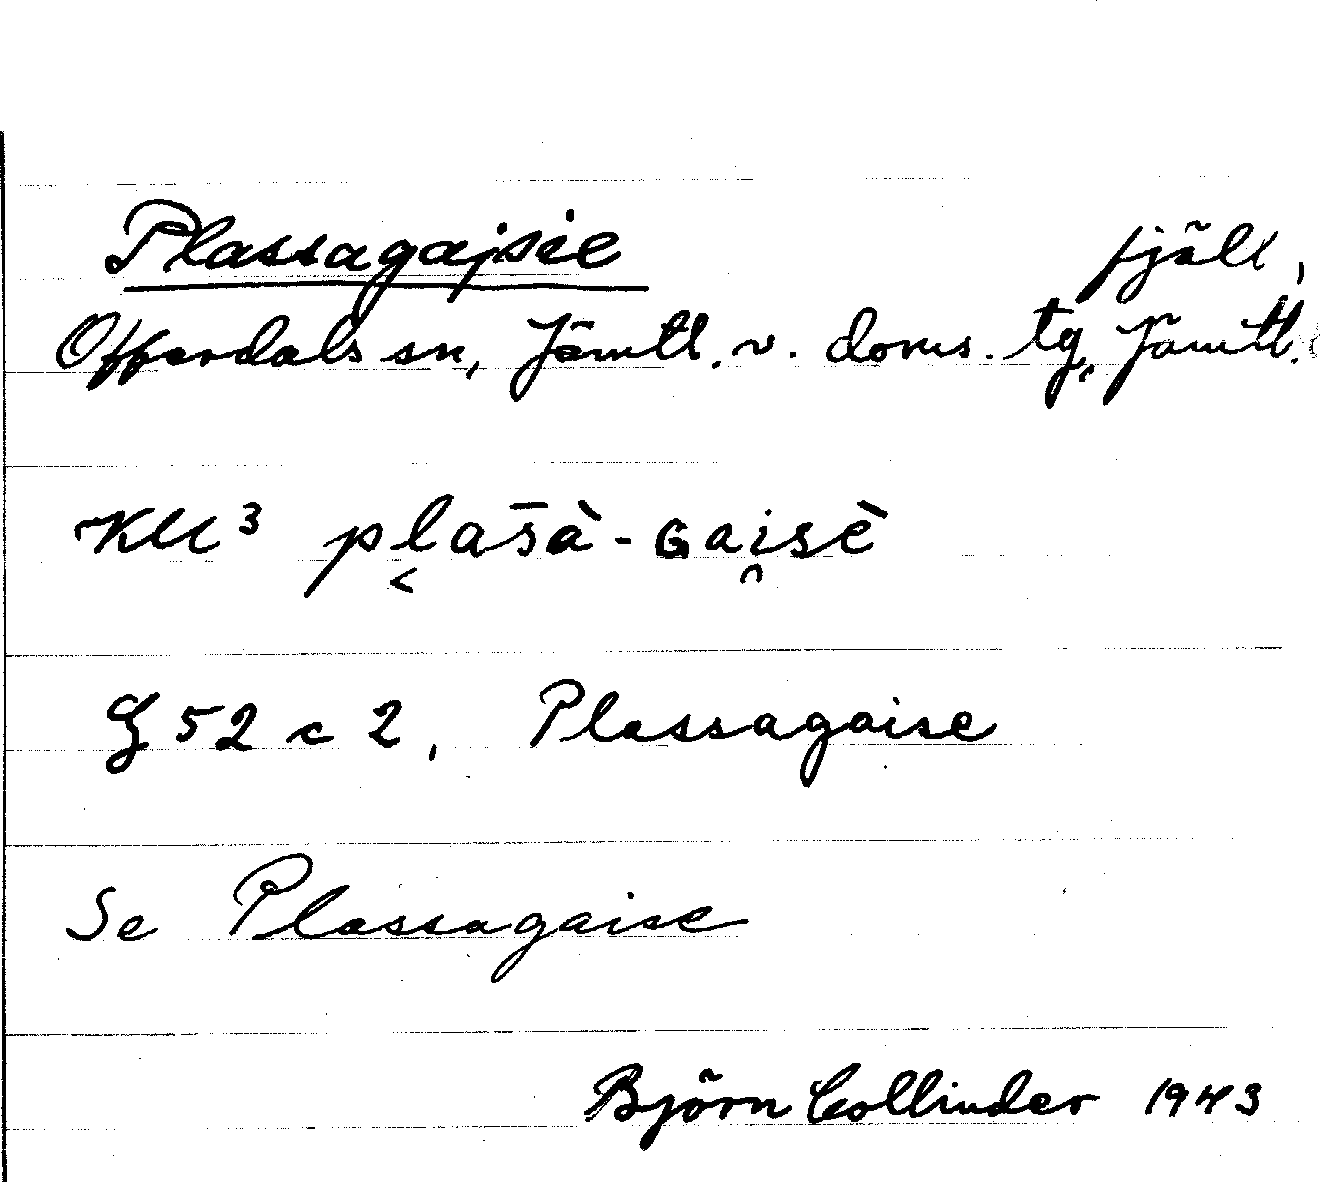 Plassagajsie fjäll,
Offerdals sn, Jämtl. v. doms. tg, Jämtl.
KM³ pl̬as̄à-ɢai̯sè
G 52 c 2, Plassagaise
Se Plassagaise
Björn Collinder 1943